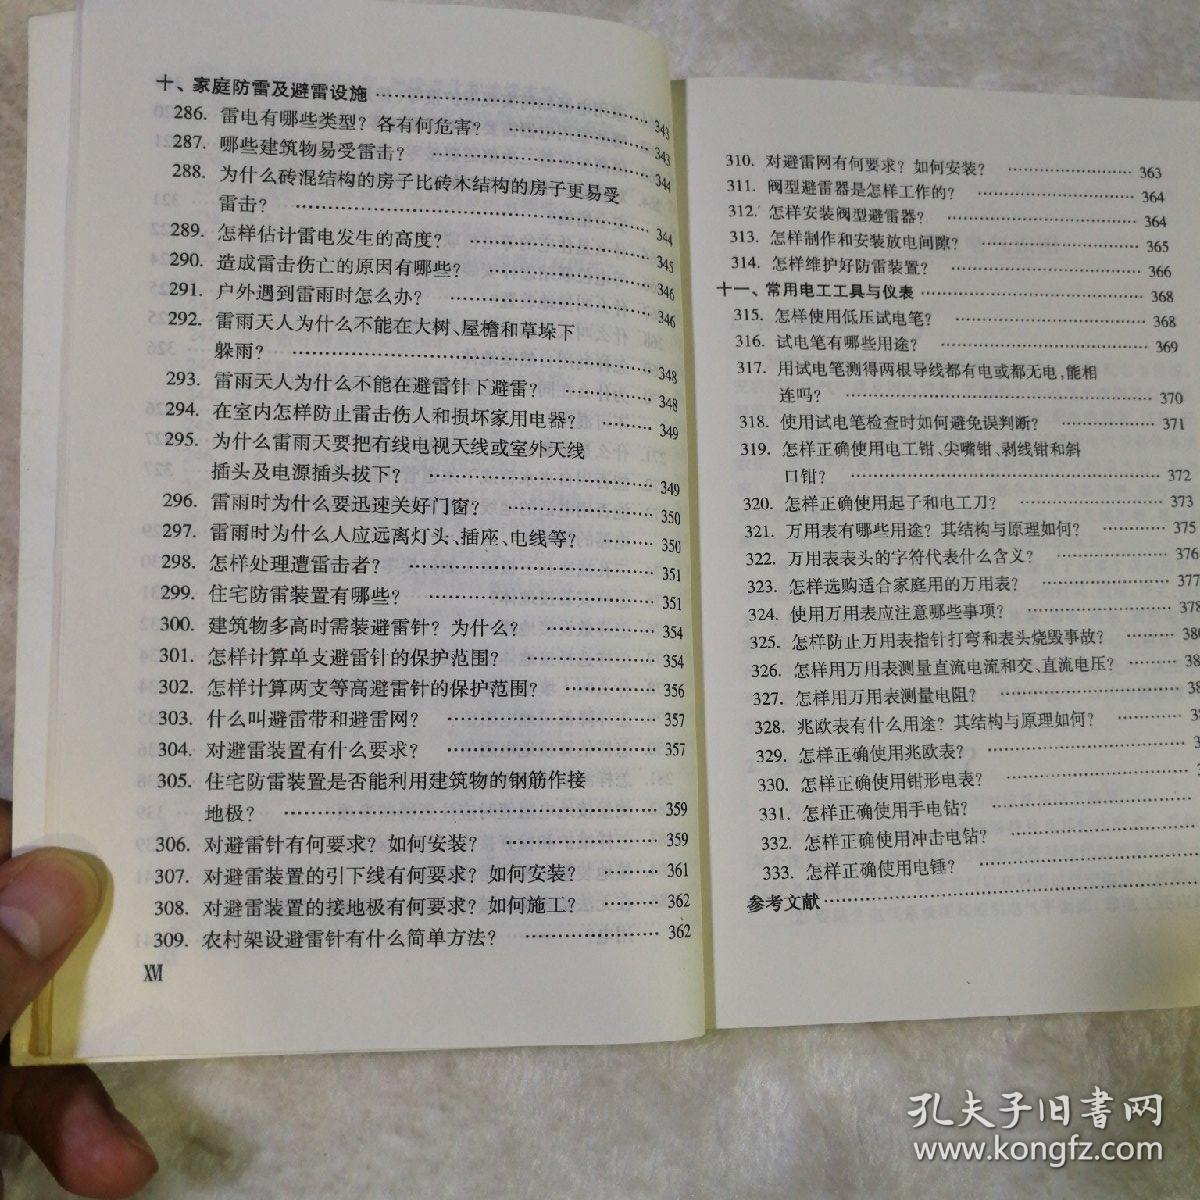 十、家庭防雷及避雷设施 …… 343
286. 雷电有哪些类型？各有何危害？ …… 343
287. 哪些建筑物易受雷击？ …… 344
288. 为什么砖混结构的房子比砖木结构的房子更易受
雷击？ …… 344
289. 怎样估计雷电发生的高度？ …… 345
290. 造成雷击伤亡的原因有哪些？ …… 346
291. 户外遇到雷雨时怎么办？ …… 346
292. 雷雨天人为什么不能在大树、屋檐和草垛下
躲雨？ …… 348
293. 雷雨天人为什么不能在避雷针下避雷？ …… 348
294. 在室内怎样防止雷击伤人和损坏家用电器？ …… 349
295. 为什么雷雨天要把有线电视天线或室外天线
插头及电源插头拔下？ …… 349
296. 雷雨时为什么要迅速关好门窗？ …… 350
297. 雷雨时为什么人应远离灯头、插座、电线等？ …… 350
298. 怎样处理遭雷击者？ …… 351
299. 住宅防雷装置有哪些？ …… 351
300. 建筑物多高时需装避雷针？为什么？ …… 354
301. 怎样计算单支避雷针的保护范围？ …… 354
302. 怎样计算两支等高避雷针的保护范围？ …… 356
303. 什么叫避雷带和避雷网？ …… 357
304. 对避雷装置有什么要求？ …… 357
305. 住宅防雷装置是否能利用建筑物的钢筋作接
地极？ …… 359
306. 对避雷针有何要求？如何安装？ …… 359
307. 对避雷装置的引下线有何要求？如何安装？ …… 361
308. 对避雷装置的接地极有何要求？如何施工？ …… 362
309. 农村架设避雷针有什么简单方法？ …… 362
XVI
310. 对避雷网有何要求？如何安装？ …… 363
311. 阀型避雷器是怎样工作的？ …… 364
312. 怎样安装阀型避雷器？ …… 364
313. 怎样制作和安装放电间隙？ …… 365
314. 怎样维护好防雷装置？ …… 366
十一、常用电工工具与仪表 …… 368
315. 怎样使用低压试电笔？ …… 368
316. 试电笔有哪些用途？ …… 369
317. 用试电笔测得两根导线都有电或都无电，能相
连吗？ …… 370
318. 使用试电笔检查时如何避免误判断？ …… 371
319. 怎样正确使用电工钳、尖嘴钳、剥线钳和斜
口钳？ …… 372
320. 怎样正确使用起子和电工刀？ …… 373
321. 万用表有哪些用途？其结构与原理如何？ …… 375
322. 万用表表头的字符代表什么含义？ …… 376
323. 怎样选购适合家庭用的万用表？ …… 377
324. 使用万用表应注意哪些事项？ …… 378
325. 怎样防止万用表指针打弯和表头烧毁事故？ …… 380
326. 怎样用万用表测量直流电流和交、直流电压？ …… 38
327. 怎样用万用表测量电阻？ …… 38
328. 兆欧表有什么用途？其结构与原理如何？ …… 3
329. 怎样正确使用兆欧表？ ……
330. 怎样正确使用钳形电表？ ……
331. 怎样正确使用手电钻？ ……
332. 怎样正确使用冲击电钻？ ……
333. 怎样正确使用电锤？ ……
参考文献 ……
孔夫子旧书网
www.kongfz.com